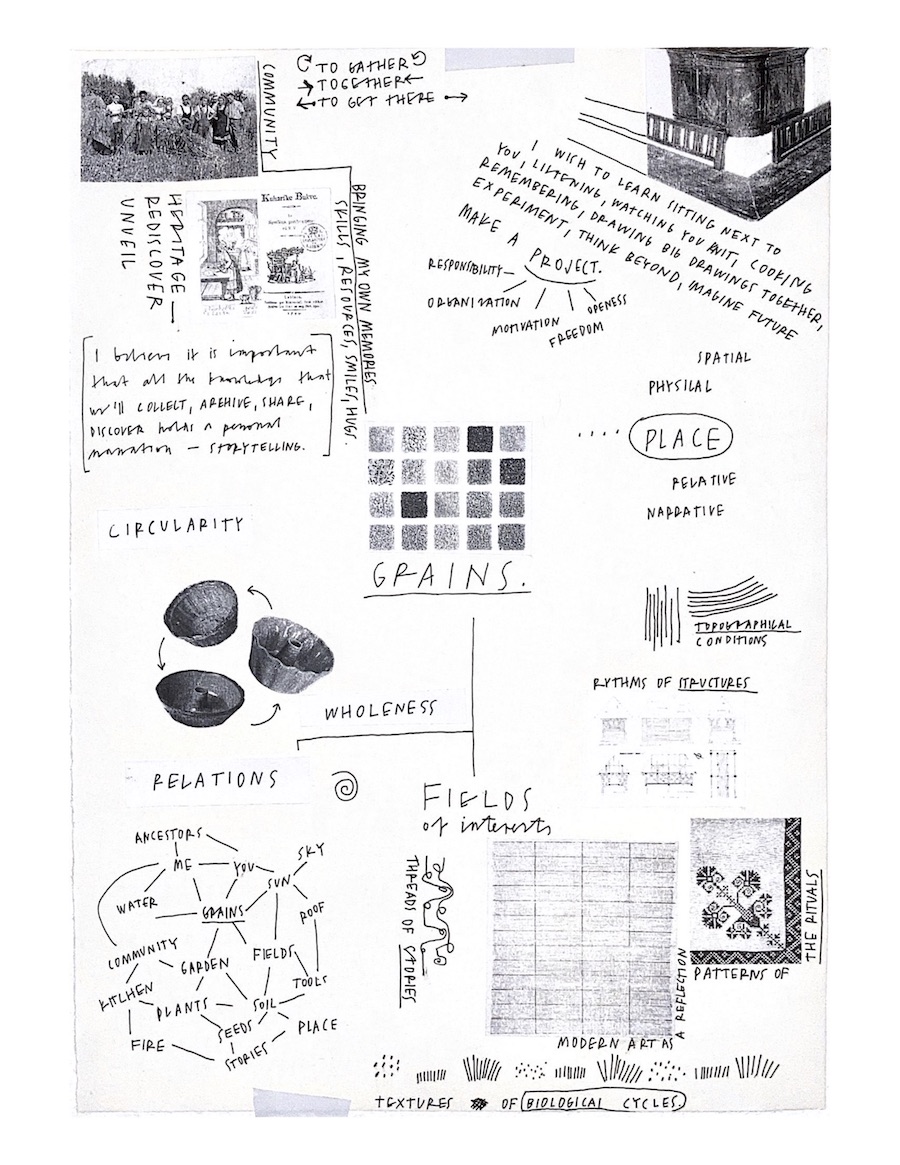 TO GATHER
TOGETHER
TO GET THERE
COMMUNITY
HERITAGE —
REDISCOVER
UNVEIL
Kuharske Bukve.
BRINGING MY OWN MEMORIES
SKILLS, RESOURCES, SMILES, HUGS.
I WISH TO LEARN SITTING NEXT TO
YOU, LISTENING, WATCHING YOU KNIT, COOKING
REMEMBERING, DRAWING BIG DRAWINGS TOGETHER,
EXPERIMENT, THINK BEYOND, IMAGINE FUTURE
MAKE A PROJECT.
RESPONSIBILITY
ORGANIZATION
MOTIVATION
FREEDOM
OPENESS
I believe it is important
that all the knowledge that
we'll COLLECT, ARCHIVE, SHARE,
DISCOVER holds a personal
narration — STORYTELLING.
SPATIAL
PHYSICAL
.... PLACE
RELATIVE
NARRATIVE
CIRCULARITY
GRAINS.
TOPOGRAPHICAL
CONDITIONS
RYTHMS OF STRUCTURES
WHOLENESS
RELATIONS
FIELDS
of interests
ANCESTORS
ME
YOU
SKY
SUN
WATER
GRAINS
ROOF
COMMUNITY
GARDEN
FIELDS
KITCHEN
PLANTS
SOIL
TOOLS
FIRE
SEEDS
PLACE
STORIES
THREADS OF STORIES
MODERN ART AS
A REFLECTION
PATTERNS OF
THE RITUALS
TEXTURES OF BIOLOGICAL CYCLES.